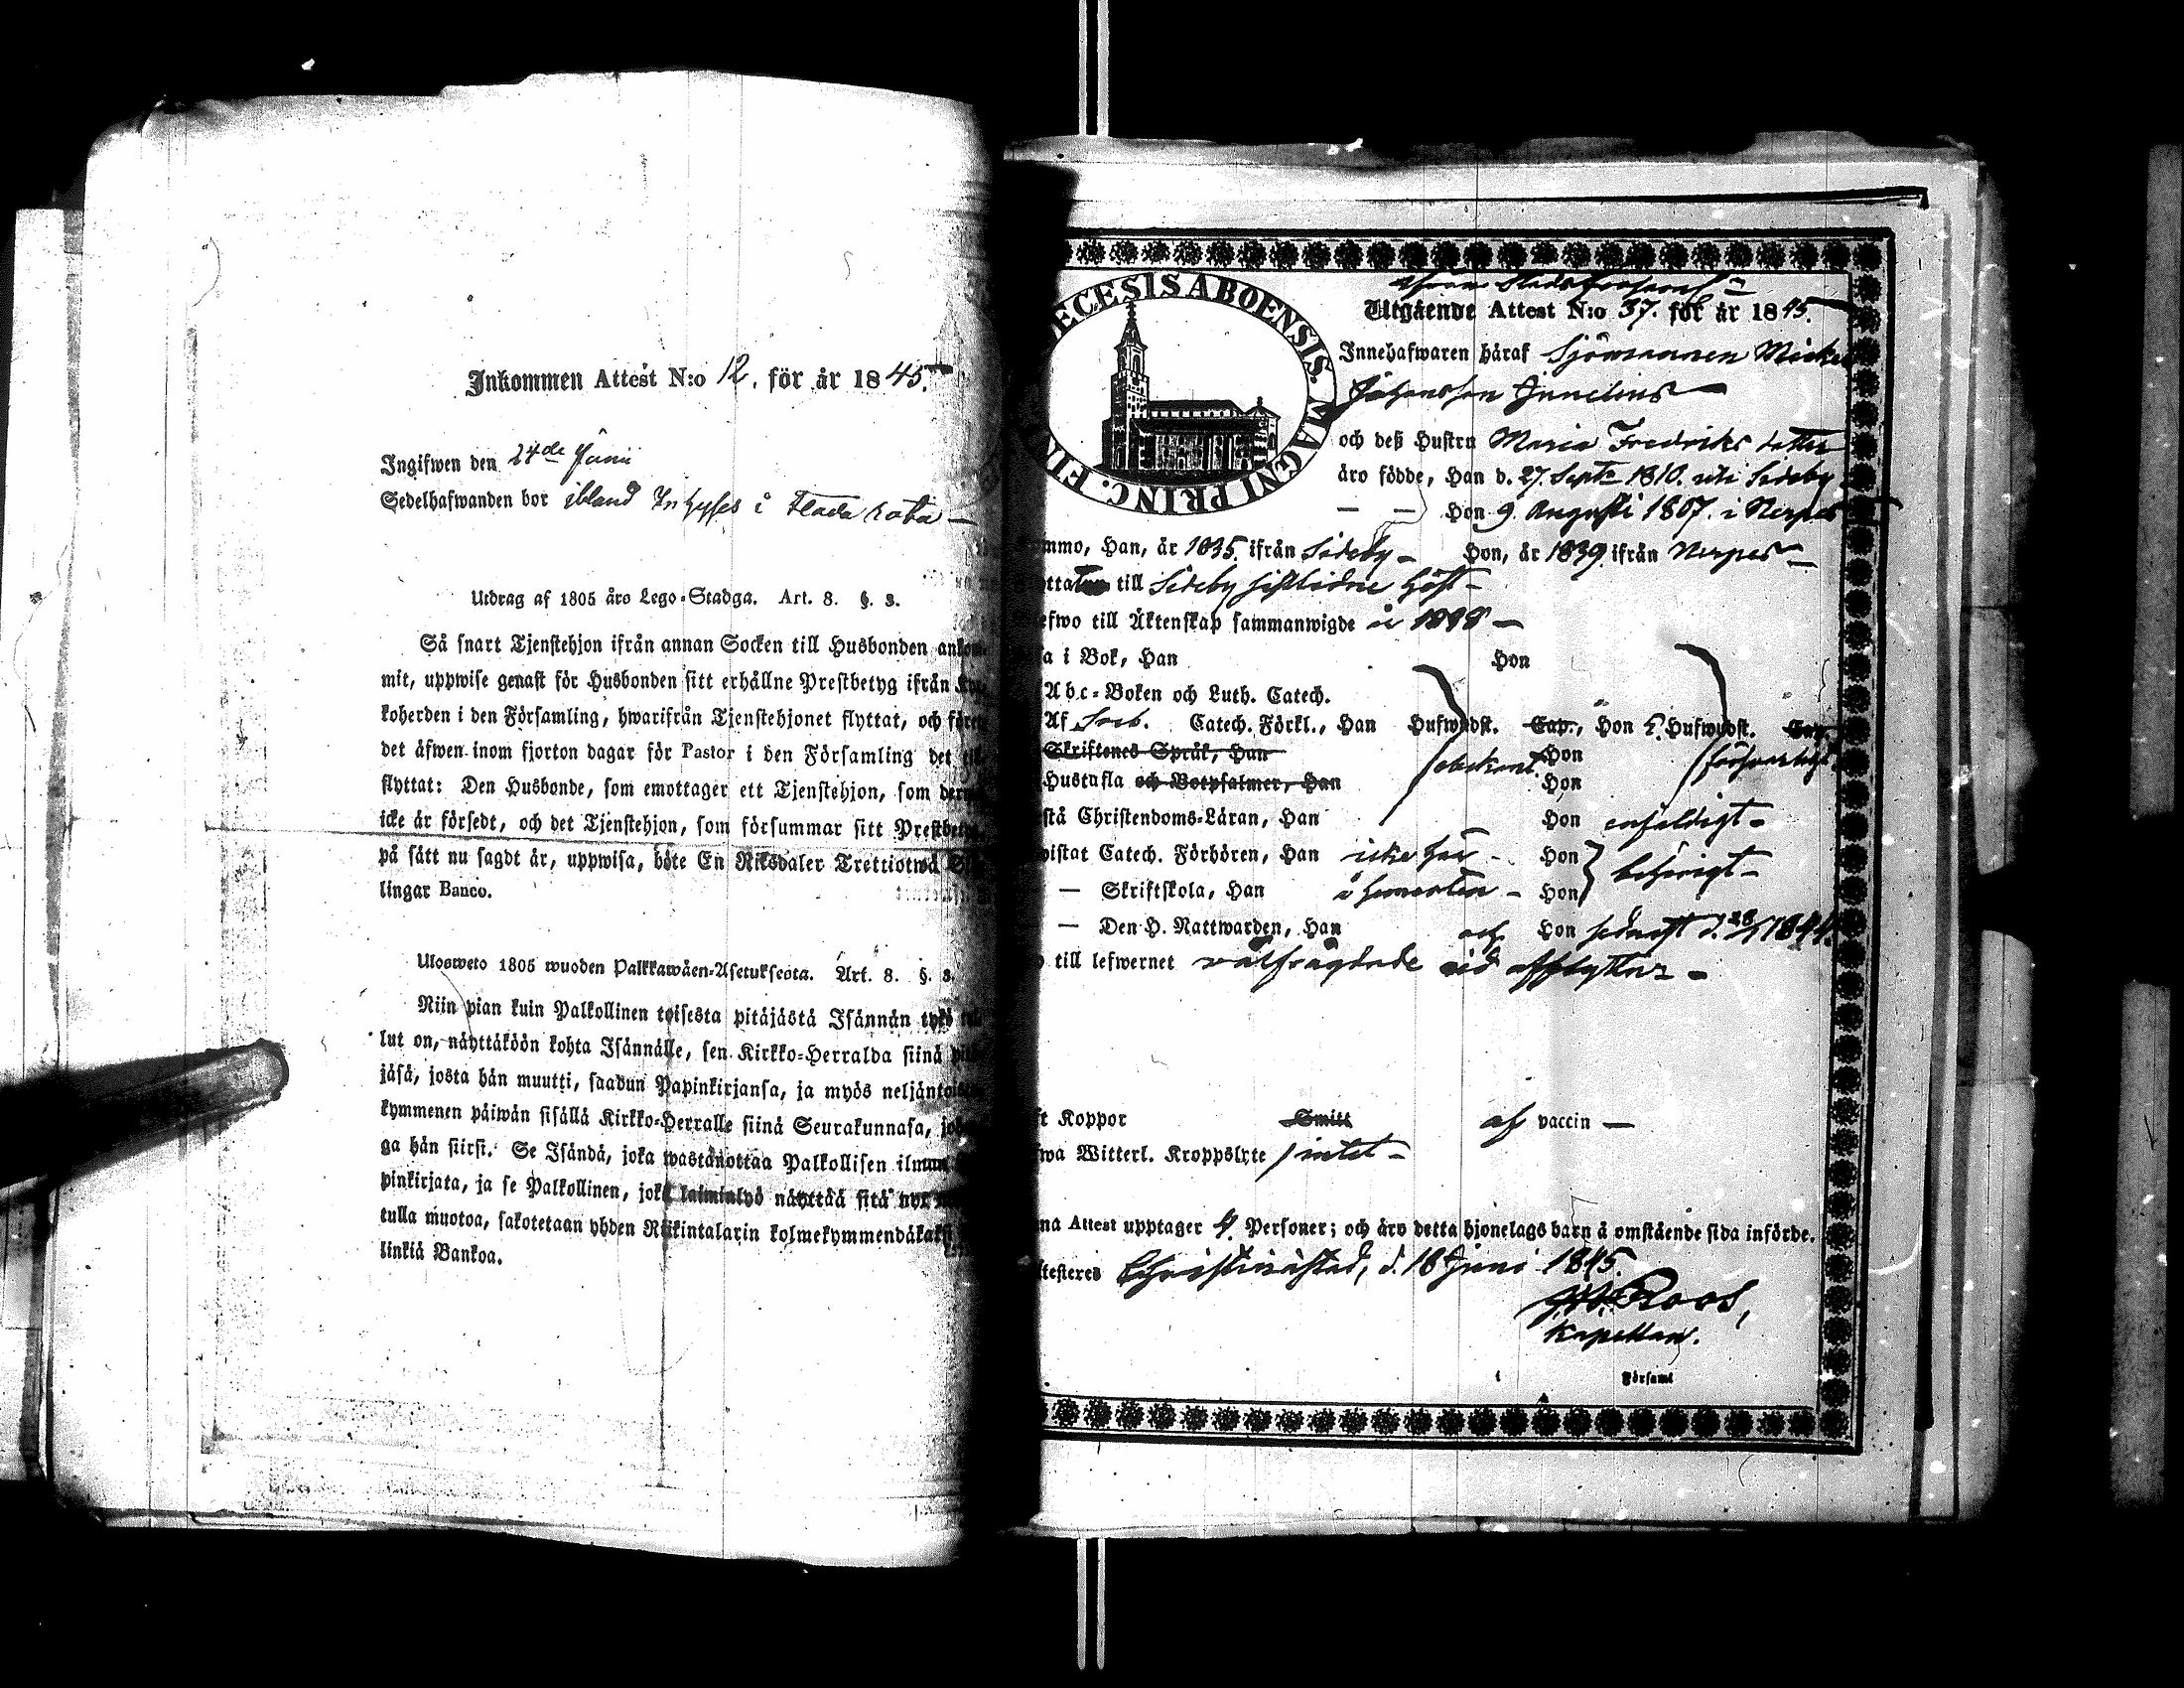 Inkommen Attest N:o 12. för år 1845.
Ingifwen den 24de Juni
Sedelhafwanden bor ibland Inhyses i Flada rota —
Utdrag af 1805 års Lego-Stadga. Art. 8. §. 3.
Så snart Tjenstehjon ifrån annan Socken till Husbonden ankom-
mit, uppwise genast för Husbonden sitt erhållne Prestbetyg ifrån Kyr-
koherden i den Församling, hwarifrån Tjenstehjonet flyttat, och förete
det äfwen inom fjorton dagar för Pastor i den Församling det till-
flyttat: Den Husbonde, som emottager ett Tjenstehjon, som dermed
icke är försedt, och det Tjenstehjon, som försummar sitt Prestbetyg,
på sätt nu sagdt är, uppwisa, böte En Riksdaler Trettiotwå
lingar Banco.
Ulosweto 1805 wuoden Palkkawäen-Asetuksesta. Art. 8. §. 3.
Niin pian kuin Palkollinen toisesta pitäjästä Isännän tykö tul-
lut on, näyttäköön kohta Isännälle, sen Kirkko-Herralda siinä pitä-
jäsä, josta hän muutti, saadun Papinkirjansa, ja myös neljäntoista
kymmenen päiwän sisällä Kirkko-Herralle siinä Seurakunnasa, johon-
ga hän siirsi. Se Isändä, joka wastanottaa Palkollisen ilman
pinkirjata, ja se Palkollinen, joka laiminlyö näyttää sitä nyt
tulla muotoa, sakotetaan yhden Riikintalarin kolmekymmendäkaksi
linkiä Bankoa.
ECESIS ABOENSIS. MAGNI PRINC. FIN
Utgående Attest N:o 37. för år 1845.
Innehafwaren häraf Sjömannen Mickel
Johansson
och deß Hustru Maria Fredriksdotter
äro födde, Han d. 27. Sept. 1810. uti Sideby
— — Hon 9. Augusti 1807. i Nerpes
mmo, Han, år 1835. ifrån Sideby — Hon, år 1839. ifrån Nerpes —
till Sideby sistlidne höst —
efwo till Äktenskap sammanwigde år —
sa i Bok, Han Hon
Abc-Boken och Luth. Catech.
Af Catech. Förkl., Han Hufwudst. Cap., Hon 5. Hufwudst. Cap.
Skriftenes Språk, Han obekant. Hon försvarligt.
Hustafla och Botpsalmer, Han Hon
stå Christendoms-Läran, Han Hon enfaldigt —
wistat Catech. Förhören, Han icke här — Hon behörigt —
— Skriftskola, Han å hemorten — Hon
— Den H. Nattwarden, Han och Hon sednast d. 1844.
till lefwernet välfrägdade vid afflyttn. —
Koppor Smitt af vaccin —
wa Witterl. Kroppslyte intet —
na Attest upptager 4. Personer; och äro detta hjonelags barn å omstående sida införde.
ttesteres Christinæstad, d. 18 Juni 1845.
Roos,
Kapellan.
Församl